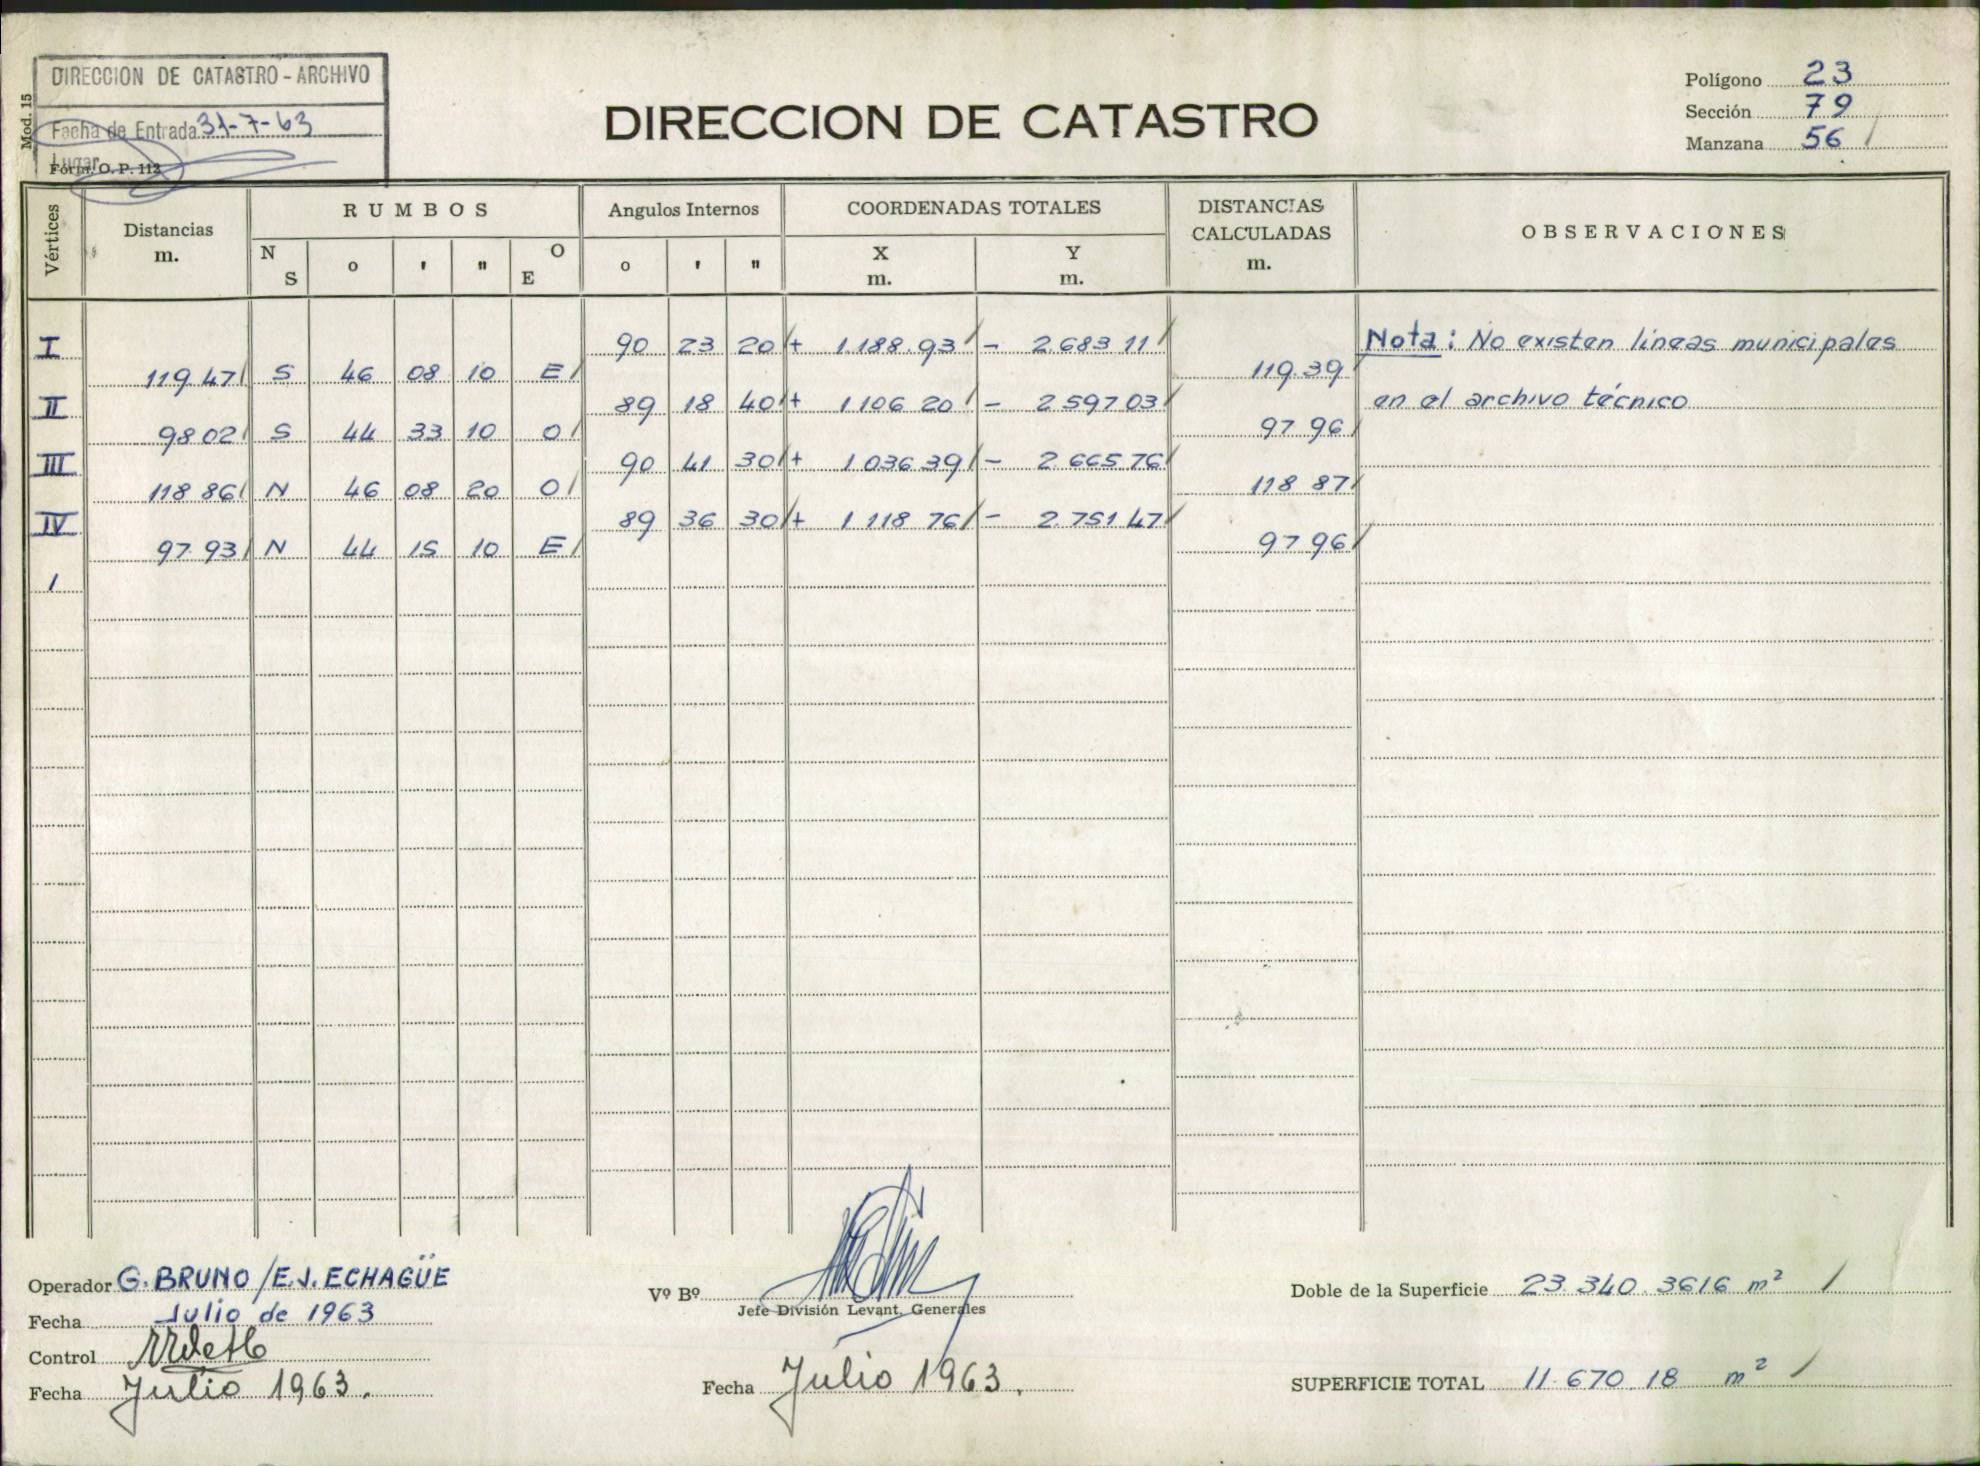 Mod. 15
DIRECCION DE CATASTRO - ARCHIVO
Fecha de Entrada 31-7-63
Lugar
Fórm. O. P. 112
DIRECCION DE CATASTRO
Polígono 23
Sección 79
Manzana 56 /
Vértices
Distancias
m.
RUMBOS
N
S
o
'
"
O
E
Angulos Internos
o
'
"
COORDENADAS TOTALES
X
m.
Y
m.
DISTANCIAS
CALCULADAS
m.
OBSERVACIONES
I 90 23 20 + 1.188.93 - 2.683 11 Nota: No existen líneas municipales
119.47 S 46 08 10 E 119.39
II 89 18 40 + 1.106 20 - 2.597 03 en el archivo técnico
98 02 S 44 33 10 O 97 96
III 90 41 30 + 1 036 39 - 2.665 76
118 86 N 46 08 20 O 118 87
IV 89 36 30 + 1 118 76 - 2.751 47
97.93 N 44 15 10 E 97 96
I
Operador G. BRUNO / E.J. ECHAGÜE
Fecha Julio de 1963
Control
Fecha Julio 1963.
Vº Bº
Jefe División Levant. Generales
Fecha Julio 1963.
Doble de la Superficie 23.340.3616 m² /
SUPERFICIE TOTAL 11.670.18 m² /